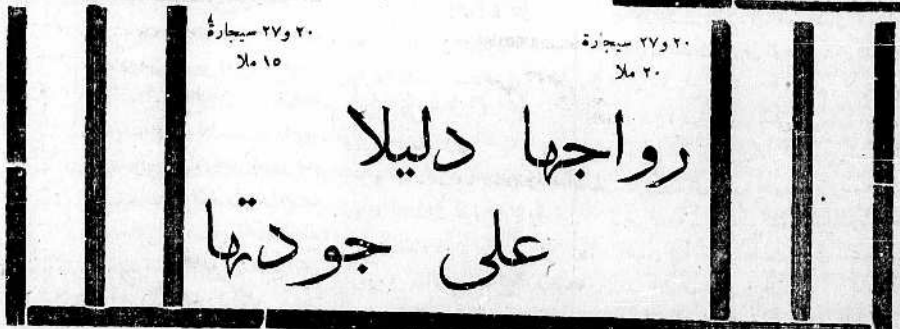 ٢٠ و٢٧ سيجارة
٢٠ ملا
٢٠ و٢٧ سيجارة
١٥ ملا
رواجها دليلا
على جودتها